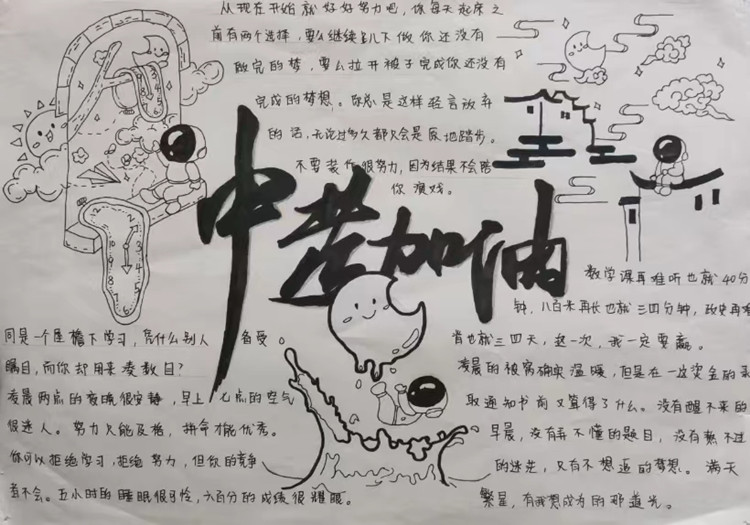 从现在开始就好好努力吧，你每天起床之
前有两个选择，要么继续趴下做你还没有
做完的梦，要么拉开被子完成你还没有
完成的梦想。你总是这样轻言放弃
的话，无论过多久都只会是原地踏步。
不要装作很努力，因为结果不会陪
你演戏。
中考加油
同是一个屋檐下学习，凭什么别人 备受
瞩目，而你却用来凑数目？
凌晨两点的夜晚很安静，早上七点的空气
很迷人。努力只能及格，拼命才能优秀。
你可以拒绝学习，拒绝努力，但你的竞争
者不会。五小时的睡眠很可怜，六百分的成绩很耀眼。
数学课再难听也就40分
钟，八百米再长也就三四分钟，政史再难
背也就三四天，这一次，我一定要赢。
凌晨的被窝确实温暖，但是在一金的录
取通知书前又算得了什么。没有醒不来的
早晨，没有弄不懂的题目，没有熬不过
的迷茫，只有不想追的梦想。满天
繁星，有我想成为的那道光。